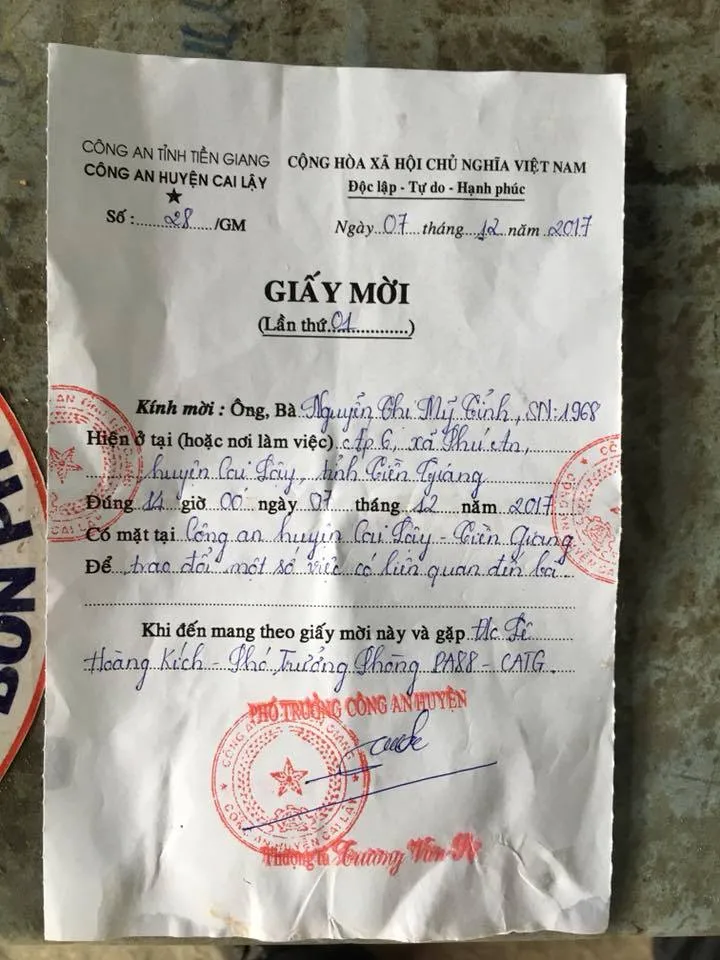 CÔNG AN TỈNH TIỀN GIANG
CÔNG AN HUYỆN CAI LẬY
Số :......28....../GM
CỘNG HÒA XÃ HỘI CHỦ NGHĨA VIỆT NAM
Độc lập - Tự do - Hạnh phúc
Ngày..07..tháng..12..năm..2017
GIẤY MỜI
(Lần thứ..01............)
Kính mời : Ông, Bà Nguyễn Thị Mỹ, SN:1968
Hiện ở tại (hoặc nơi làm việc) ấp 6, xã Phú An,
huyện Cai Lậy, tỉnh Tiền Giang
Đúng 14 giờ 00 ngày 07 tháng 12 năm 2017
Có mặt tại Công an huyện Cai Lậy - Tiền Giang
Để trao đổi một số việc có liên quan đến bà
Khi đến mang theo giấy mời này và gặp Đ/c Lê
Hoàng Kích - Phó Trưởng Phòng PA88 - CATG.
PHÓ TRƯỞNG CÔNG AN HUYỆN
CÔNG AN HUYỆN CAI LẬY
Thượng tá Trương Văn
BÚN